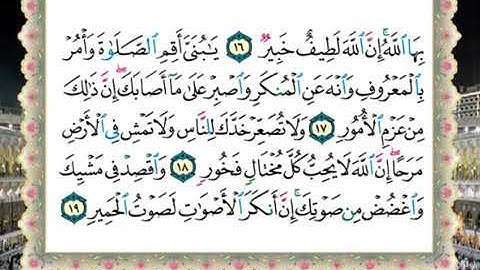 بِهَا ٱللَّهُۚ إِنَّ ٱللَّهَ لَطِيفٌ خَبِيرٞ ١٦ يَٰبُنَيَّ أَقِمِ ٱلصَّلَوٰةَ وَأۡمُرۡ
بِٱلۡمَعۡرُوفِ وَٱنۡهَ عَنِ ٱلۡمُنكَرِ وَٱصۡبِرۡ عَلَىٰ مَآ أَصَابَكَۖ إِنَّ ذَٰلِكَ
مِنۡ عَزۡمِ ٱلۡأُمُورِ ١٧ وَلَا تُصَعِّرۡ خَدَّكَ لِلنَّاسِ وَلَا تَمۡشِ فِي ٱلۡأَرۡضِ
مَرَحًاۖ إِنَّ ٱللَّهَ لَا يُحِبُّ كُلَّ مُخۡتَالٖ فَخُورٖ ١٨ وَٱقۡصِدۡ فِي مَشۡيِكَ
وَٱغۡضُضۡ مِن صَوۡتِكَۚ إِنَّ أَنكَرَ ٱلۡأَصۡوَٰتِ لَصَوۡتُ ٱلۡحَمِيرِ ١٩